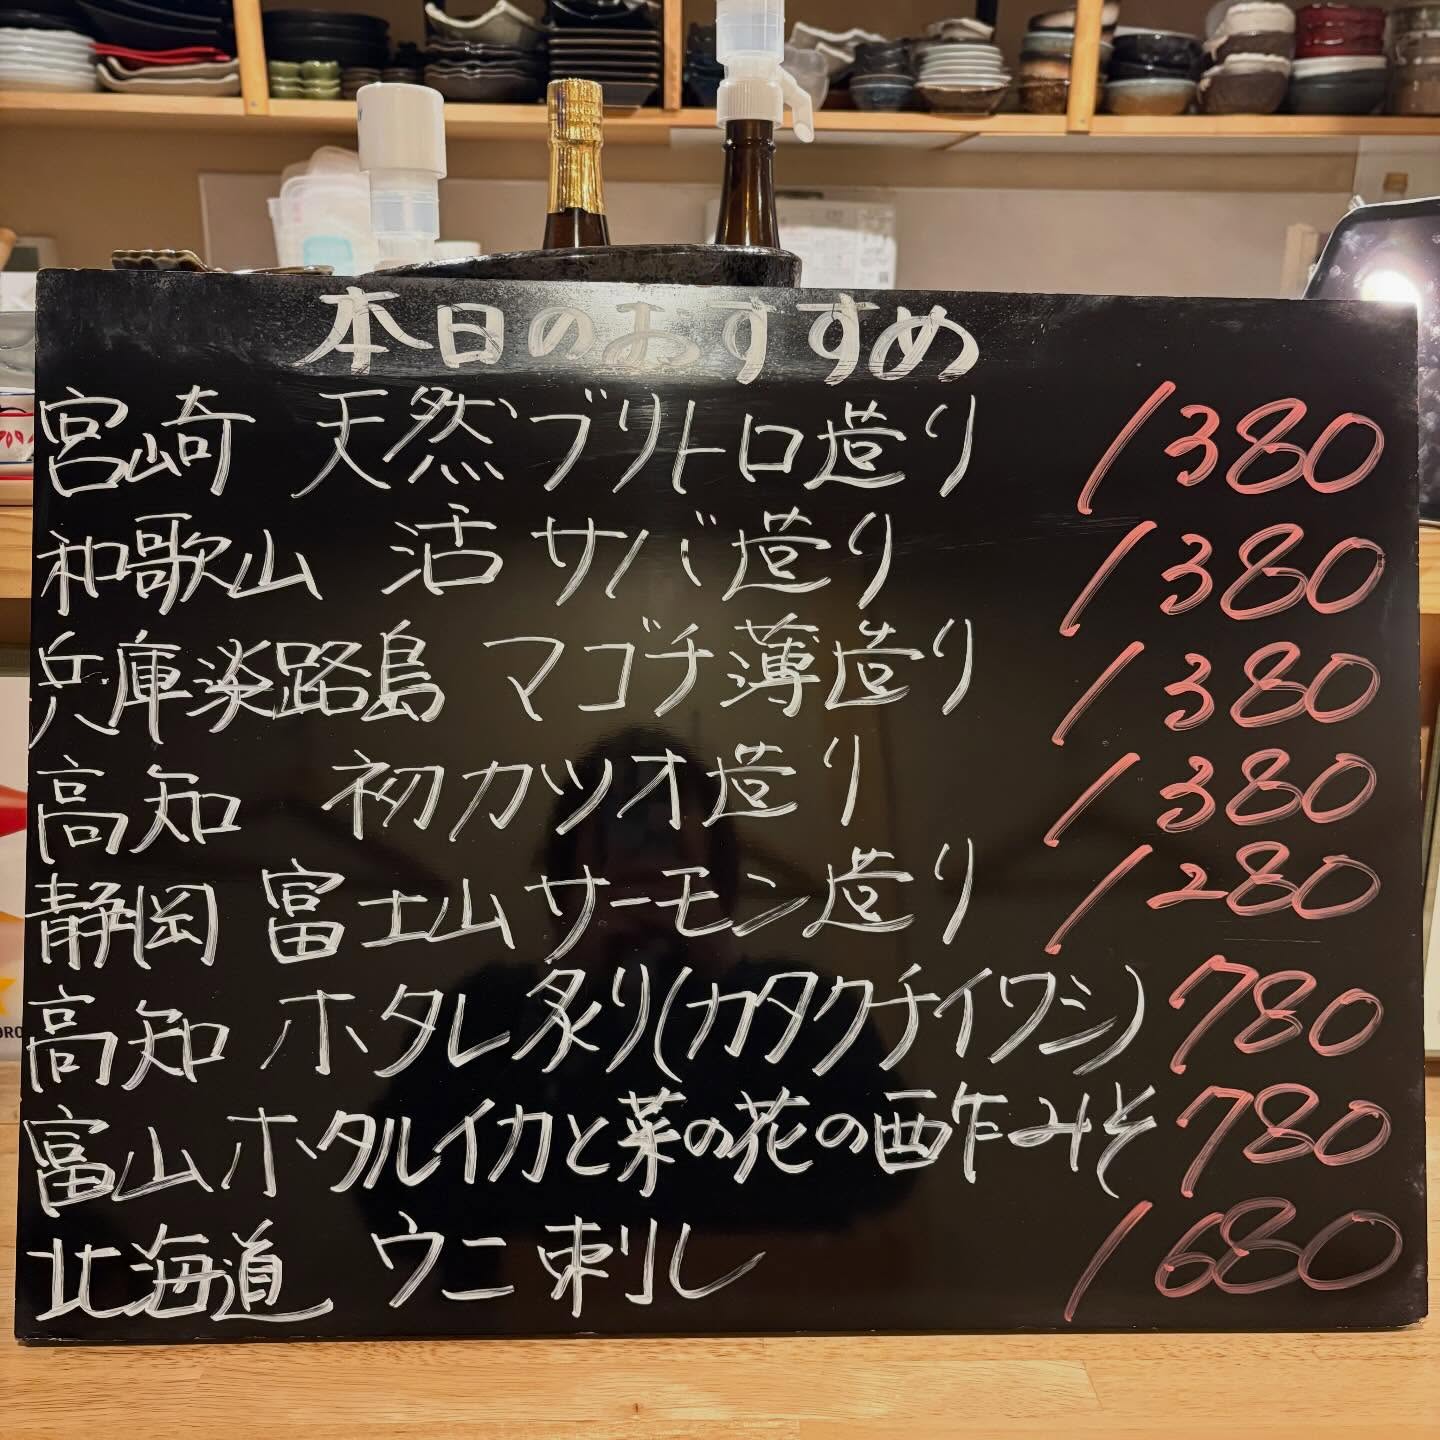 本日のおすすめ
宮崎 天然ブリトロ造り 1380
和歌山 活サバ造り 1380
兵庫淡路島 マゴチ薄造り 1380
高知 初カツオ造り 1380
静岡 富士山サーモン造り 1280
高知 ホタレ炙り(カタクチイワシ) 780
富山ホタルイカと菜の花の酢みそ 780
北海道 ウニ刺し 1680